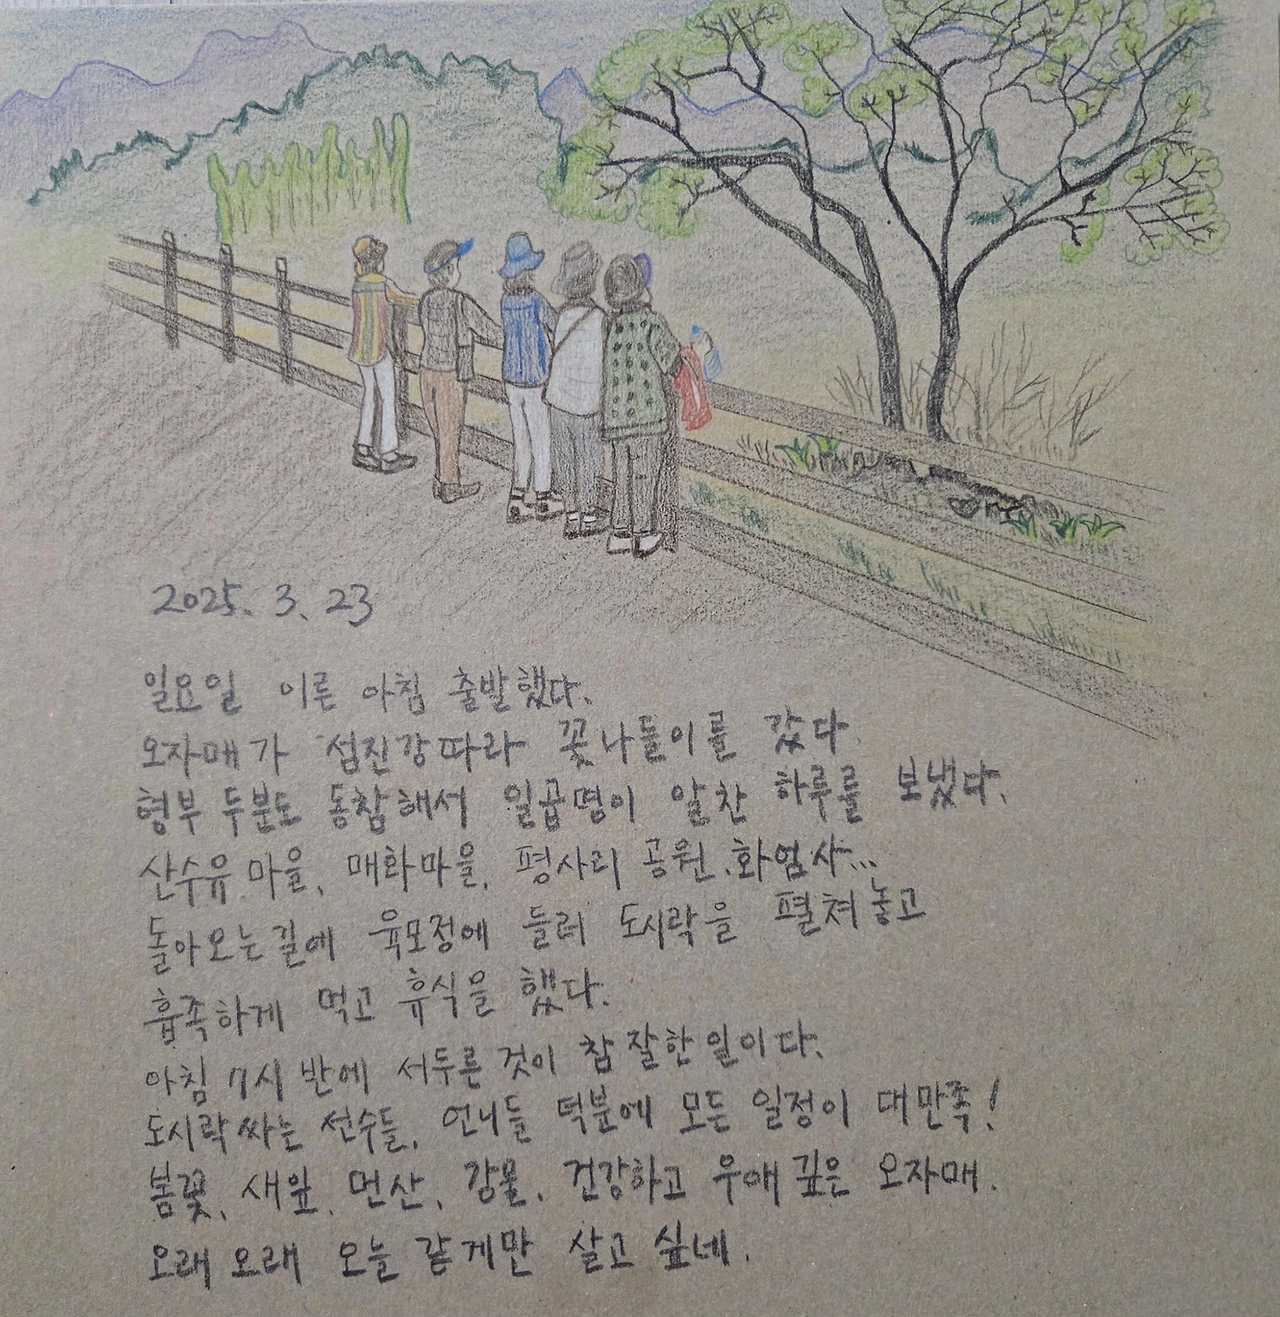 2025. 3. 23
일요일 이른 아침 출발했다.
오자매가 섬진강따라 꽃나들이를 갔다.
형부 두분도 동참해서 일곱명이 알찬 하루를 보냈다.
산수유 마을, 매화마을, 평사리 공원, 화엄사...
돌아오는길에 육모정에 들려 도시락을 펼쳐놓고
흡족하게 먹고 휴식을 했다.
아침 7시 반에 서두른 것이 참 잘한일이다.
도시락 싸는 선수들, 언니들 덕분에 모든 일정이 대만족!
봄꽃, 새잎, 먼산, 강물, 건강하고 우애 깊은 오자매.
오래 오래 오늘 같게만 살고 싶네.